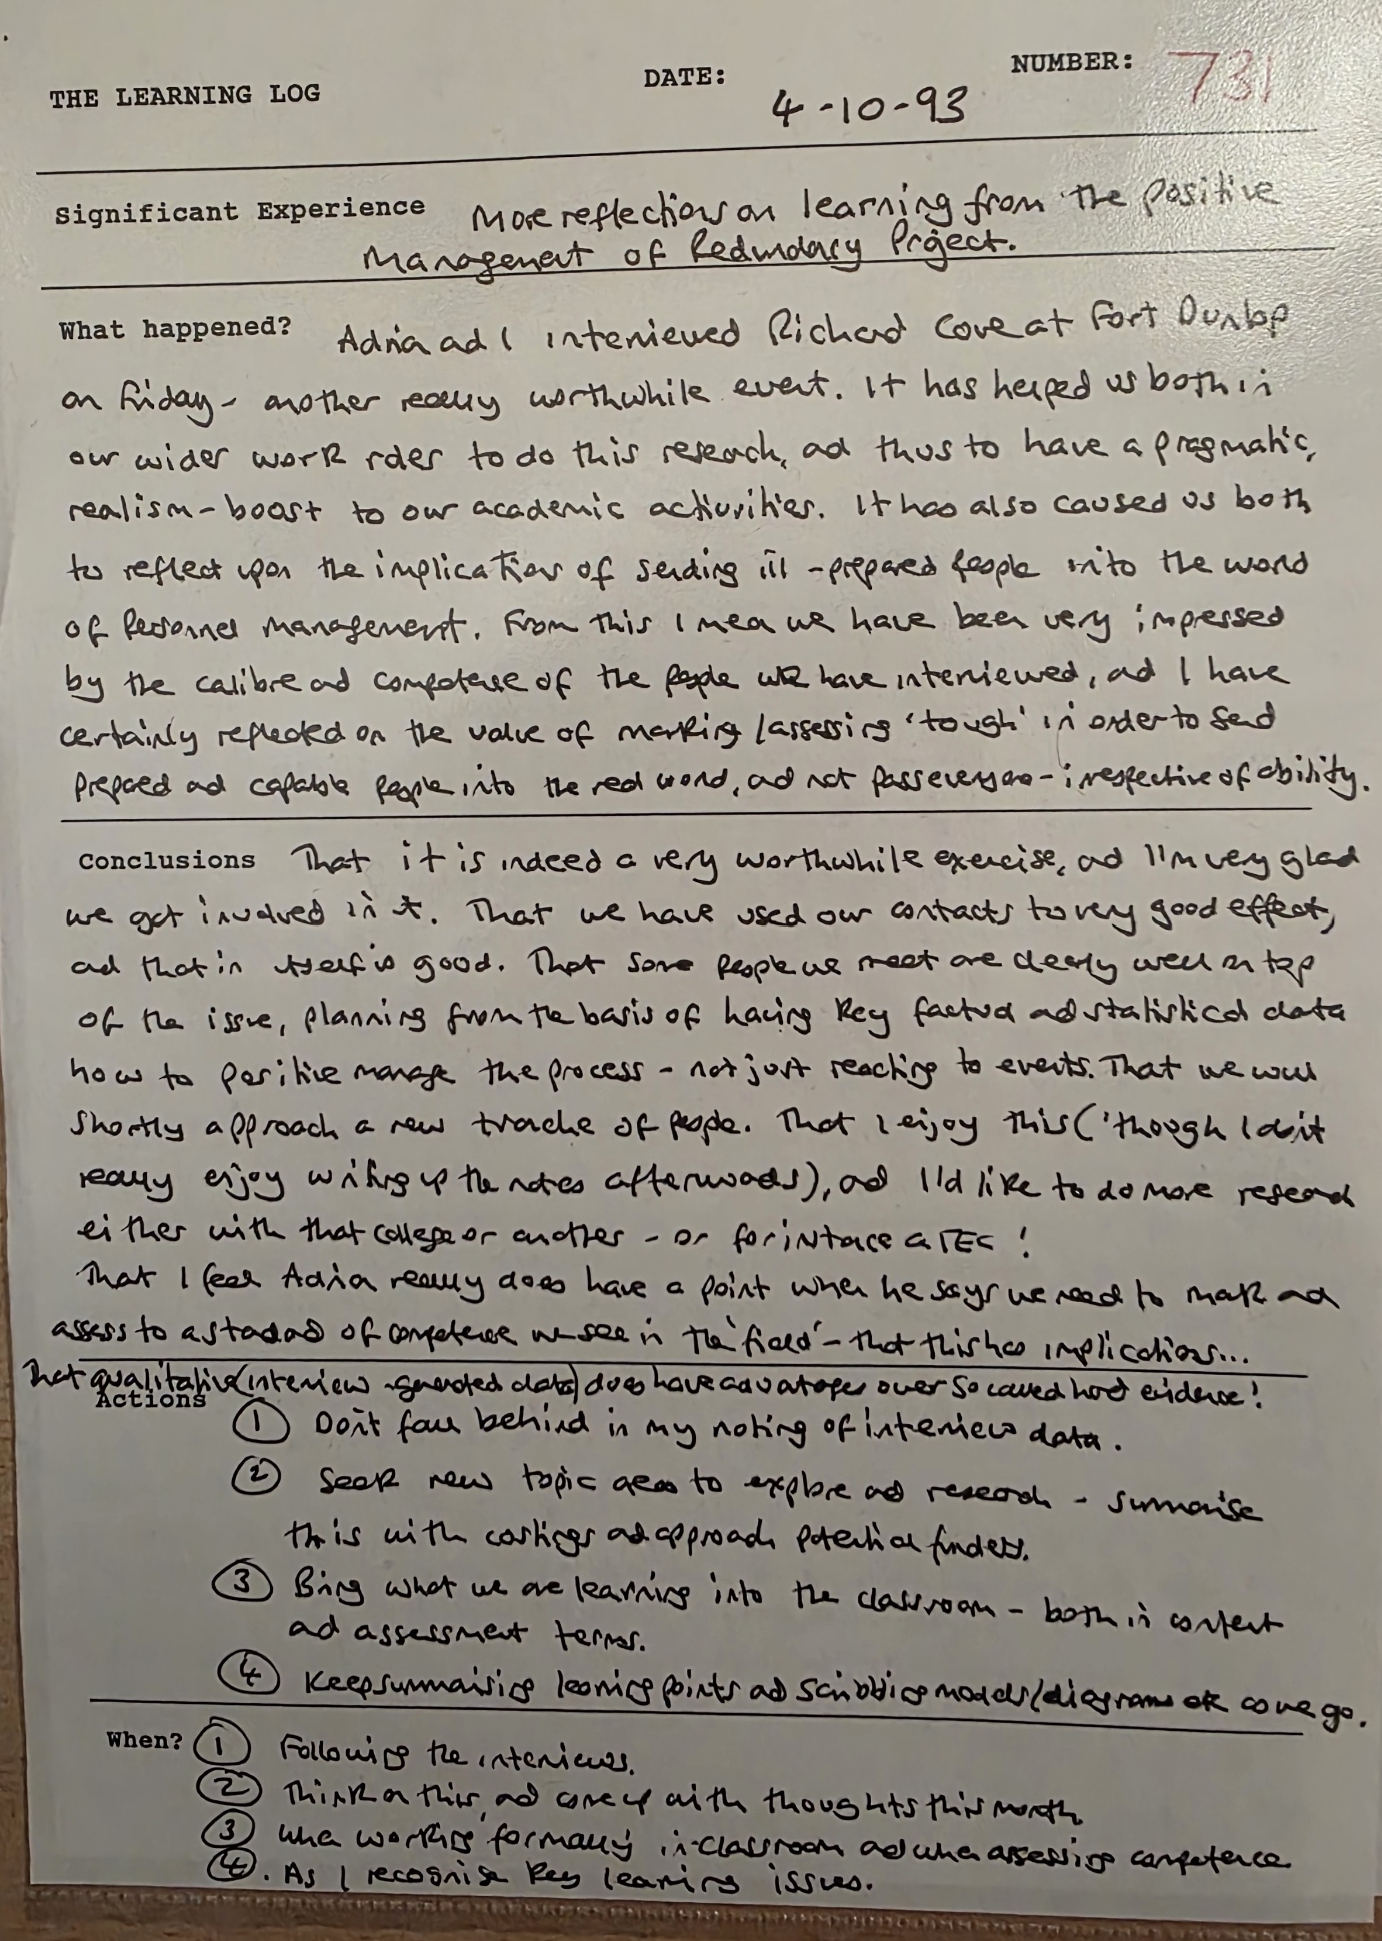 THE LEARNING LOG DATE: 4-10-93 NUMBER: 731
Significant Experience More reflections on learning from the Positive
Management of Redundancy Project.
What happened? Adrian and I interviewed Richard Cove at Fort Dunlop
on Friday - another really worthwhile event. It has helped us both in
our wider work roles to do this research, and thus to have a pragmatic,
realism-boost to our academic activities. It has also caused us both
to reflect upon the implications of sending ill-prepared people into the world
of Personnel Management. From this I mean we have been very impressed
by the calibre and competence of the people we have interviewed, and I have
certainly reflected on the value of marking/assessing 'tough' in order to send
prepared and capable people into the real world, and not pass everyone - irrespective of ability.
Conclusions That it is indeed a very worthwhile exercise, and I'm very glad
we got involved in it. That we have used our contacts to very good effect,
and that in itself is good. That some people we meet are clearly well on top
of the issue, planning from the basis of having key factual and statistical data
how to positive manage the process - not just reacting to events. That we will
shortly approach a new tranche of people. That I enjoy this ('though I don't
really enjoy writing up the notes afterwards), and I'd like to do more research
either with that college or another - or for instance a TEC!
That I feel Adrian really does have a point when he says we need to mark and
assess to a standard of competence we see in the 'field' - that this has implications...
That qualitative (interview-generated data) does have advantages over so called hard evidence!
Actions
① Don't fall behind in my noting of interview data.
② Seek new topic areas to explore and research - summarise
this with costings and approach potential funders.
③ Bring what we are learning into the classroom - both in content
and assessment terms.
④ Keep summarising learning points and scribbling models/diagrams etc as we go.
When? ① Following the interviews.
② Think on this, and come up with thoughts this month.
③ When working formally in-classroom and when assessing competence
④. As I recognise key learning issues.